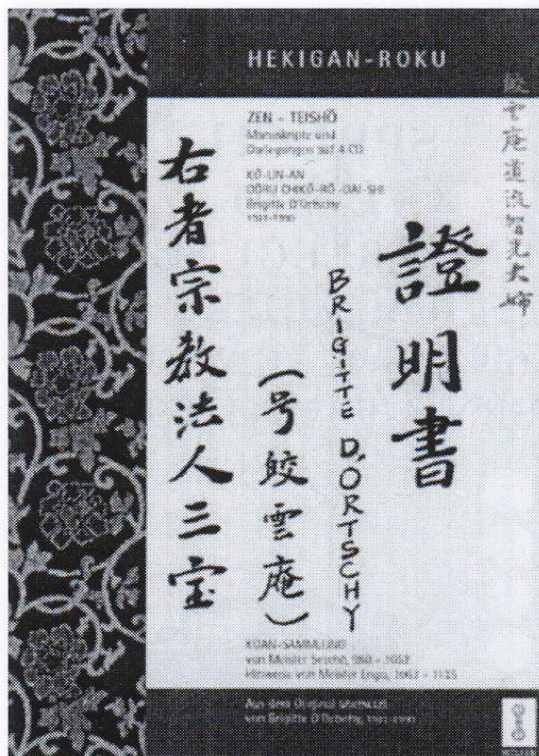 HEKIGAN-ROKU
ZEN – TEISHŌ
Manuskripte und
Darlegungen auf 4 CD
KŌ-UN-AN
Brigitte D'Ortschy
1921-1990
證明書
BRIGITTE D'ORTSCHY
(号鮫雲庵)
右者宗教法人三宝
KOAN-SAMMLUNG
von Meister Setchō, 980 – 1052
Hinweise von Meister Engo, 1063 – 1135
Aus dem Original übersetzt
von Brigitte D'Ortschy, 1921-1990